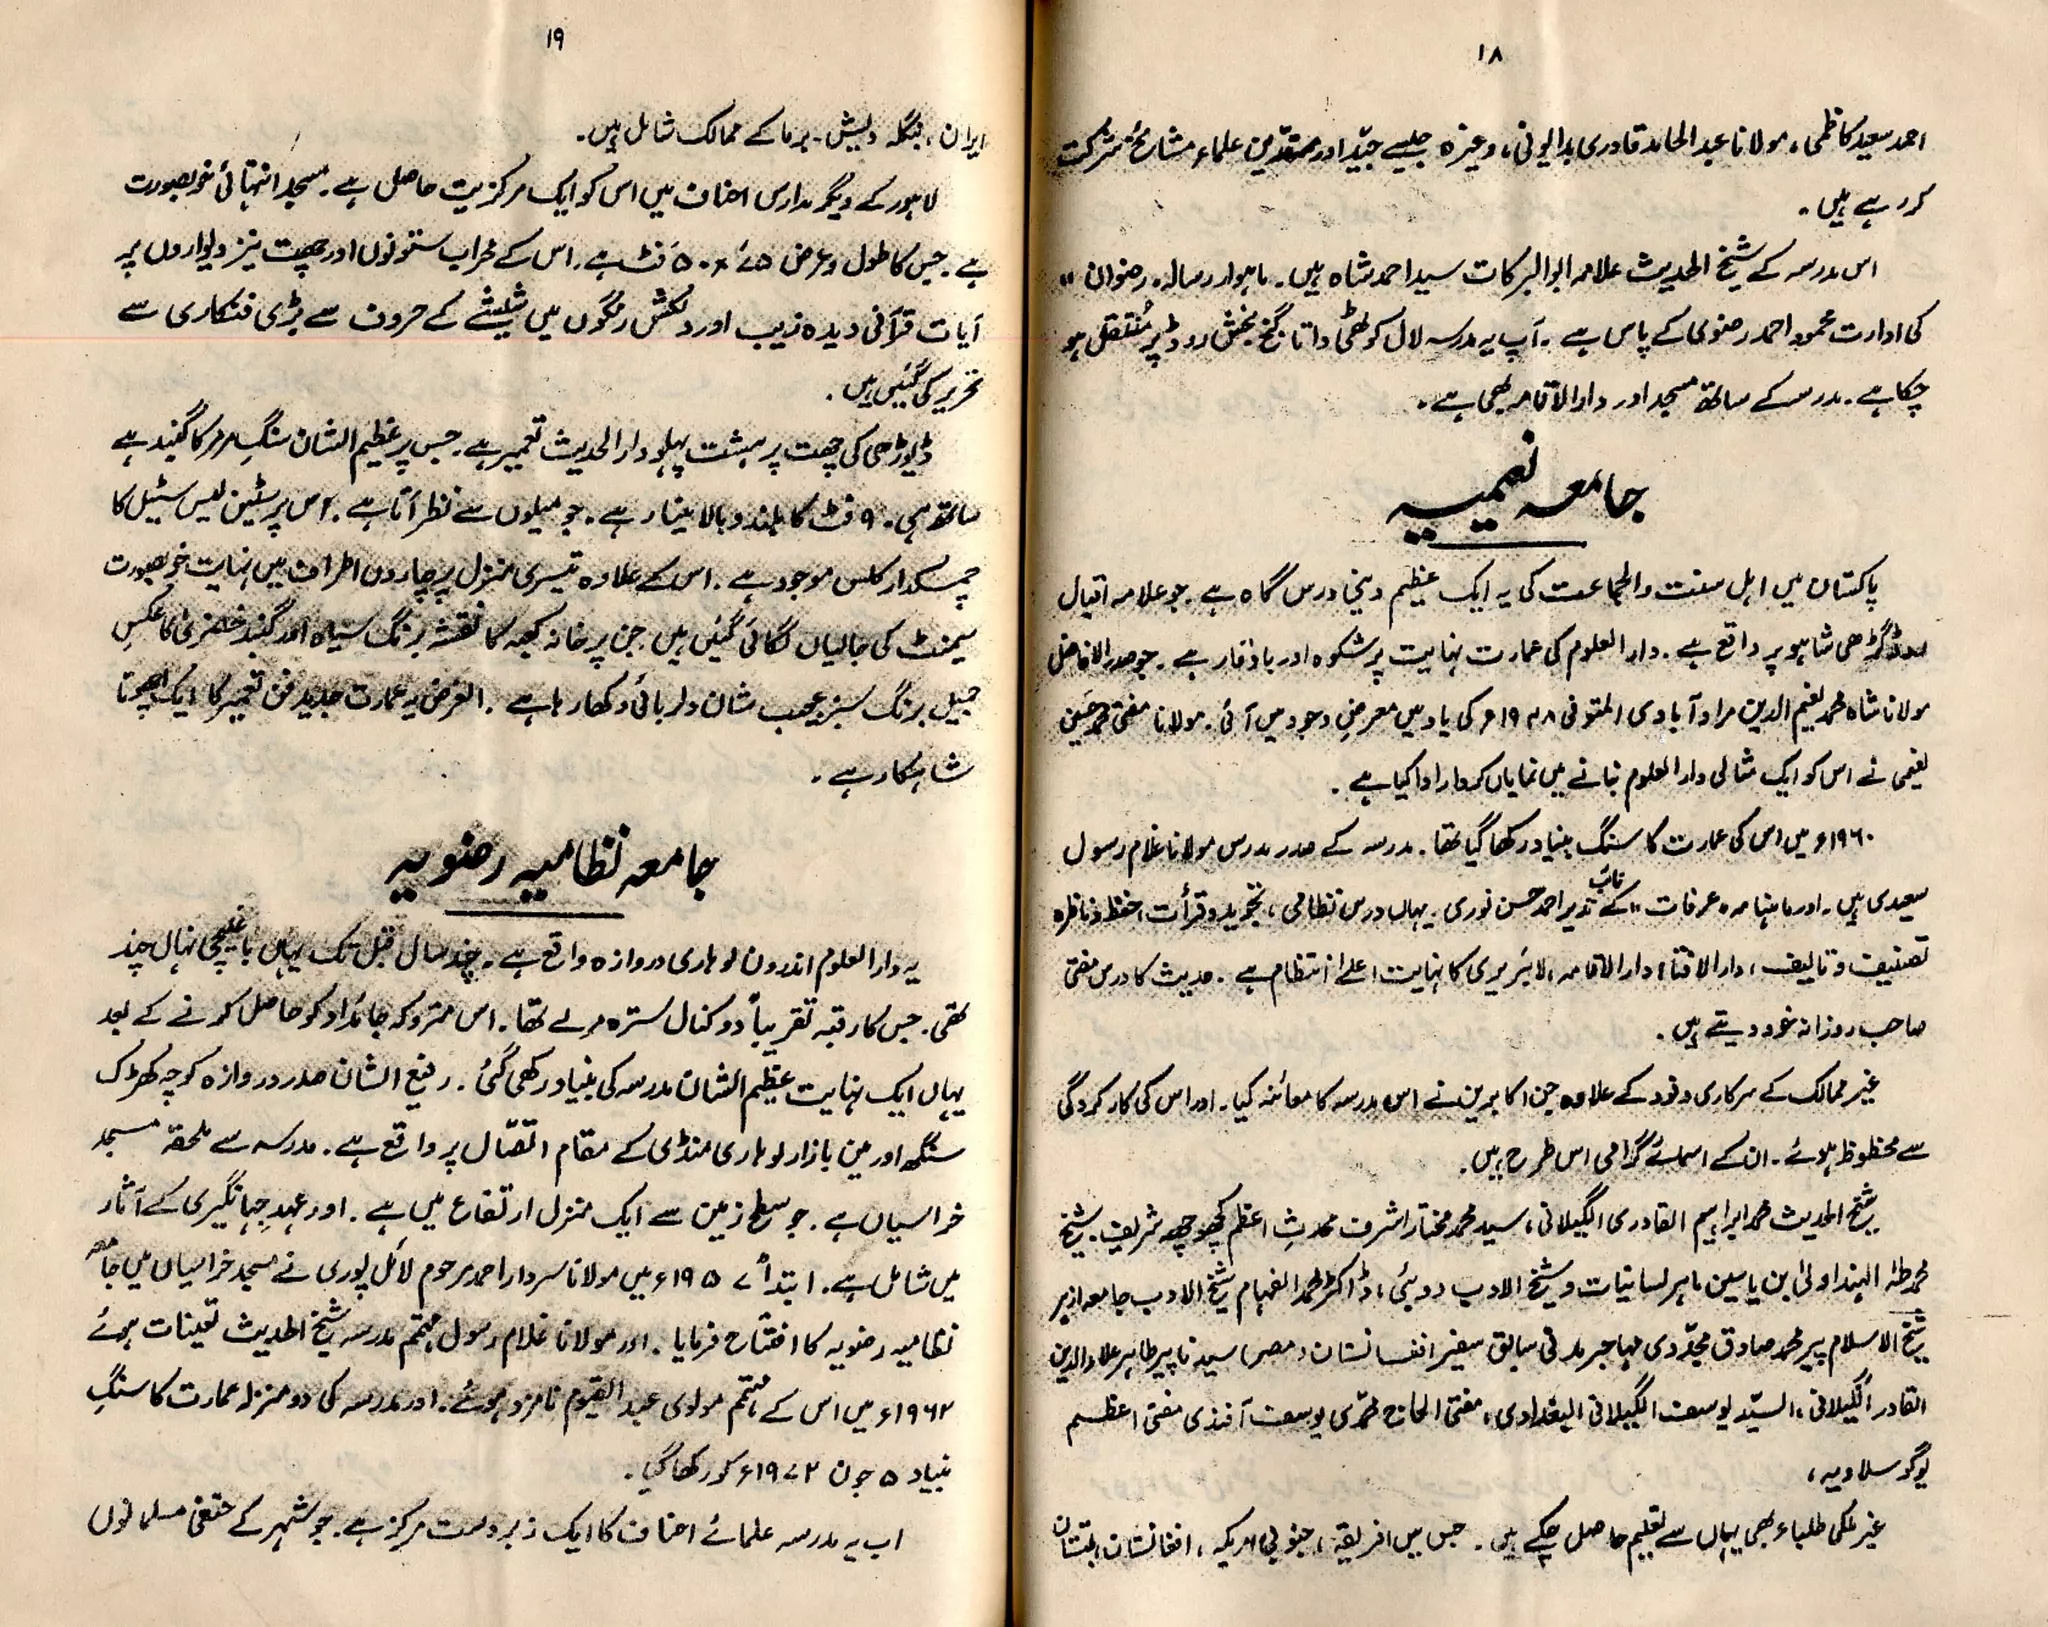 ۱۸
احمد سعید کاظمی، مولانا عبد الحامد قادری بدایونی، وغیرہ جیسے جیّد اور مقتدین علماء مشائخ شرکت
کر رہے ہیں۔
اس مدرسہ کے شیخ الحدیث علامہ ابوالبرکات سید احمد شاہ ہیں۔ ماہوار رسالہ، رضوان "
کی ادارت محمود احمد رضوی کے پاس ہے۔ آپ یہ مدرسہ لال کوٹھی داتا گنج بخش روڈ پر مُنتقل ہو
چکا ہے۔ مدرسہ کے ساتھ مسجد اور دارالاقامہ بھی ہے۔
جامعہ نعیمیہ
پاکستان میں اہل سنت والجماعت کی یہ ایک عظیم دینی درس گاہ ہے۔ جو علامہ اقبال
روڈ گڑھی شاہو پر واقع ہے۔ دار العلوم کی عمارت نہایت پر شکوہ اور باوقار ہے۔ جو صدر الافاضل
مولانا شاہ محمد نعیم الدین مراد آبادی المتوفی ۱۹۴۸ء کی یاد میں معرضِ وجود میں آئی۔ مولانا مفتی محمد حسین
نعیمی نے اس کو ایک مثالی دار العلوم بنانے میں نمایاں کردار ادا کیا ہے۔
۱۹۶۰ء میں اس کی عمارت کا سنگ بنیاد رکھا گیا تھا۔ مدرسہ کے صدر مدرس مولانا غلام رسول
سعیدی ہیں۔ اور ماہنامہ عرفات " کے نائب مدیر احمد حسن نوری۔ یہاں درس نظامی، تجوید و قرأت، حفظ و ناظرہ
تصنیف و تالیف، دار الافتاء، دار الاقامہ، لائبریری کا نہایت اعلےٰ انتظام ہے۔ حدیث کا درس مفتی
صاحب روزانہ خود دیتے ہیں۔
غیر ممالک کے سرکاری وفود کے علاوہ جن اکابرین نے اس مدرسہ کا معائنہ کیا۔ اور اس کی کارکردگی
سے محظوظ ہوئے۔ ان کے اسمائے گرامی اس طرح ہیں۔
شیخ الحدیث محمد ابراہیم القادری الگیلانی، سید محمد مختار اشرف محدثِ اعظم کچھوچھہ شریف۔ شیخ
محمد طٰہٰ الہنداوی ابن یاسین ماہر لسانیات و شیخ الادب دوبئی، ڈاکٹر محمد الفہام شیخ الادب جامعہ ازہر
شیخ الاسلام پیر محمد صادق مجدّدی مہاجر مدنی سابق سفیر افغانستان، مصر، سیدنا پیر طاہر علاء الدین
القادر الگیلانی، السیّد یوسف الگیلانی البغدادی، مفتی الحاج محمدی یوسف آفندی مفتی اعظم
یوگوسلاویہ،
غیر ملکی طلباء بھی یہاں سے تعلیم حاصل چکے ہیں۔ جس میں افریقہ، جنوبی امریکہ، افغانستان، بلتستان
۱۹
ایران، بنگلہ دیش۔ برما کے ممالک شامل ہیں۔
لاہور کے دیگر مدارس احناف میں اس کو ایک مرکزیت حاصل ہے۔ مسجد انتہائی خوبصورت
ہے۔ جس کا طول و عرض ۷۵ × ۵۰ فٹ ہے۔ اس کے محراب ستونوں اور چھت نیز دیواروں پر
آیات قرآنی دیدہ زیب اور دلکش رنگوں میں شیشے کے حروف سے بڑی فنکاری سے
تحریر کی گئیں ہیں۔
ڈیوڑھی کی چھت پر ہشت پہلو دار الحدیث تعمیر ہے۔ جس پر عظیم الشان سنگِ مرمر کا گنبد ہے
ساتھ ہی ۹۰ فٹ کا بلند و بالا مینار ہے۔ جو میلوں سے نظر آتا ہے۔ اس پر سٹین لیس سٹیل کا
چمکدار کلس موجود ہے۔ اس کے علاوہ تیسری منزل پر چاروں اطراف میں نہایت خوبصورت
سیمنٹ کی جالیاں لگائی گئیں ہیں جن پر خانہ کعبہ کا نقشہ برنگ سیاہ اور گنبد خضریٰ کا عکسِ
جمیل برنگ سبز عجب شان دلربائی دکھا رہا ہے۔ الغرض یہ عمارت جدید فن تعمیر کا ایک اچھوتا
شاہکار ہے۔
جامعہ نظامیہ رضویہ
یہ دار العلوم اندرون لوہاری دروازہ واقع ہے۔ چند سال قبل تک یہاں باغیچی نہال چند
تھی۔ جس کا رقبہ تقریباً دو کنال سترہ مرلے تھا۔ اس متروکہ جائداد کو حاصل کرنے کے بعد
یہاں ایک نہایت عظیم الشان مدرسہ کی بنیاد رکھی گئی۔ رفیع الشان صدر دروازہ کوچہ کھڑک
سنگھ اور مین بازار لوہاری منڈی کے مقام اتّصال پر واقع ہے۔ مدرسہ سے ملحقہ مسجد
خراسیاں ہے۔ جو سطح زمین سے ایک منزل ارتفاع میں ہے۔ اور عہدِ جہانگیری کے آثار
میں شامل ہے۔ ابتداً ۱۹۵۷ء میں مولانا سردار احمد مرحوم لائل پوری نے مسجد خراسیاں میں جامعہ
نظامیہ رضویہ کا افتتاح فرمایا۔ اور مولانا غلام رسول مہتم مدرسہ شیخ الحدیث تعینات ہوئے
۱۹۶۲ء میں اس کے مہتم مولوی عبد القیوم نامزد ہوئے۔ اور مدرسہ کی دو منزلہ عمارت کا سنگِ
بنیاد ۵ جون ۱۹۷۲ء کو رکھا گیا۔
اب یہ مدرسہ علمائے احناف کا ایک زبردست مرکز ہے۔ جو شہر کے حنفی مسلمانوں